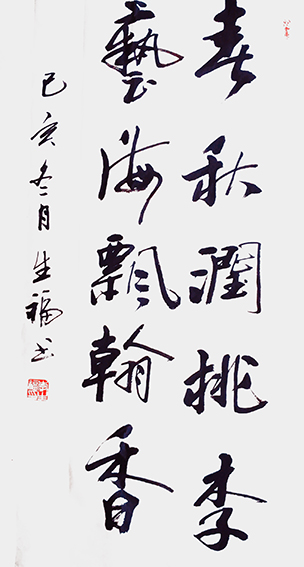 春秋潤桃李
藝海飄翰香
己亥冬月生福书